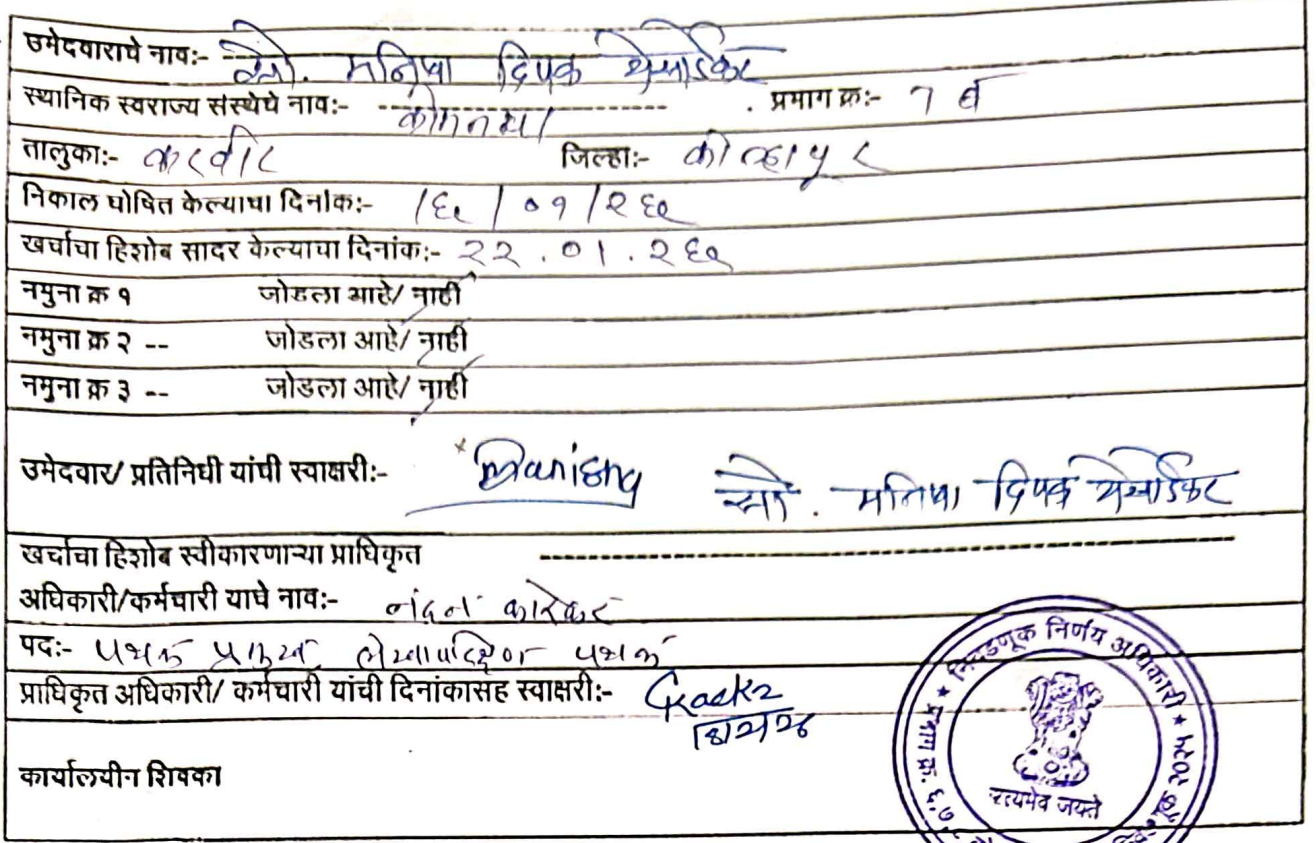 उमेदवाराचे नाव:- सौ. मनिषा दिपक
स्थानिक स्वराज्य संस्थेचे नाव:- कोमनपा . प्रभाग क्र:- ७ ब
तालुका:- करवीर जिल्हा:- कोल्हापूर
निकाल घोषित केल्याचा दिनांक:- १६ / ०१ / २६
खर्चाचा हिशोब सादर केल्याचा दिनांक:- २२ . ०१ . २६
नमुना क्र १ जोडला आहे/ नाही
नमुना क्र २ -- जोडला आहे/ नाही
नमुना क्र ३ -- जोडला आहे/ नाही
उमेदवार/ प्रतिनिधी यांची स्वाक्षरी:- सौ. मनिषा दिपक
खर्चाचा हिशोब स्वीकारणाऱ्या प्राधिकृत
अधिकारी/कर्मचारी याचे नाव:- नंदन कारेकर
पद:- पथक प्रमुख लेखापरिक्षण पथक
प्राधिकृत अधिकारी/ कर्मचारी यांची दिनांकासह स्वाक्षरी:-
कार्यालयीन शिक्का
निवडणूक निर्णय अधिकारी
सत्यमेव जयते